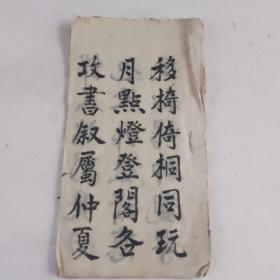 移椅倚桐同玩
月點燈登閣各
攻書叙屬仲夏